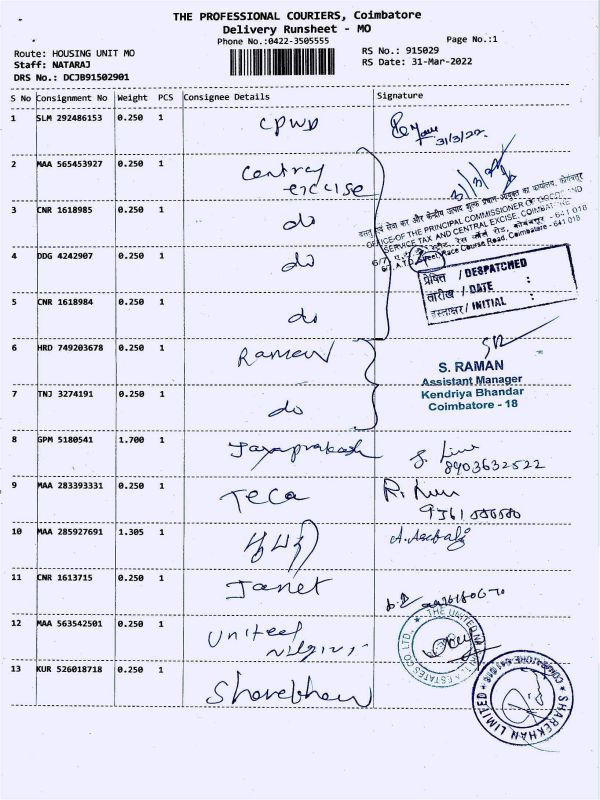 THE PROFESSIONAL COURIERS, Coimbatore
Delivery Runsheet - MO
Phone No.:0422-3505555
Page No.:1
Route: HOUSING UNIT MO
RS No.: 915029
Staff: NATARAJ
RS Date: 31-Mar-2022
DRS No.: DCJB91502901
S No Consignment No Weight PCS Consignee Details Signature
1 SLM 292486153 0.250 1 CPWD
31/3/22
2 MAA 565453927 0.250 1 Central
excise
3 CNR 1618985 0.250 1 do
4 DDG 4242907 0.250 1 do
5 CNR 1618984 0.250 1 do
OFFICE OF THE PRINCIPAL COMMISSIONER OF
SERVICE TAX AND CENTRAL EXCISE, COIMBATORE
6/7, A.T.D. Street, Race Course Road, Coimbatore - 641 018
प्रेषित / DESPATCHED
तारीख / DATE :
हस्ताक्षर / INITIAL :
6 HRD 749203678 0.250 1 Raman
S. RAMAN
Assistant Manager
Kendriya Bhandar
Coimbatore - 18
7 TNJ 3274191 0.250 1 do
8 GPM 5180541 1.700 1 Jayaprakash
8903632522
9 MAA 283393331 0.250 1 Teca
10 MAA 285927691 1.305 1
11 CNR 1613715 0.250 1 Janet
12 MAA 563542501 0.250 1 United
Nilgiris
THE UNITED NILGIRI TEA ESTATES CO LTD.,
13 KUR 526018718 0.250 1 Sharekhan
SHAREKHAN LIMITED